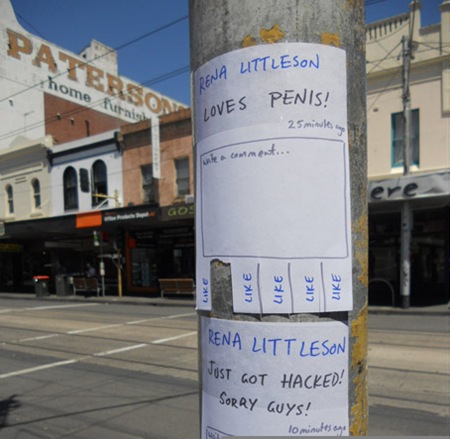 PATERSONS
home furnish
Office Products Depot
RENA LITTLESON
LOVES PENIS!
25 minutes ago
Write a comment...
LIKE
LIKE
LIKE
LIKE
LIKE
ere
RENA LITTLESON
JUST GOT HACKED!
SORRY GUYS!
10 minutes ago